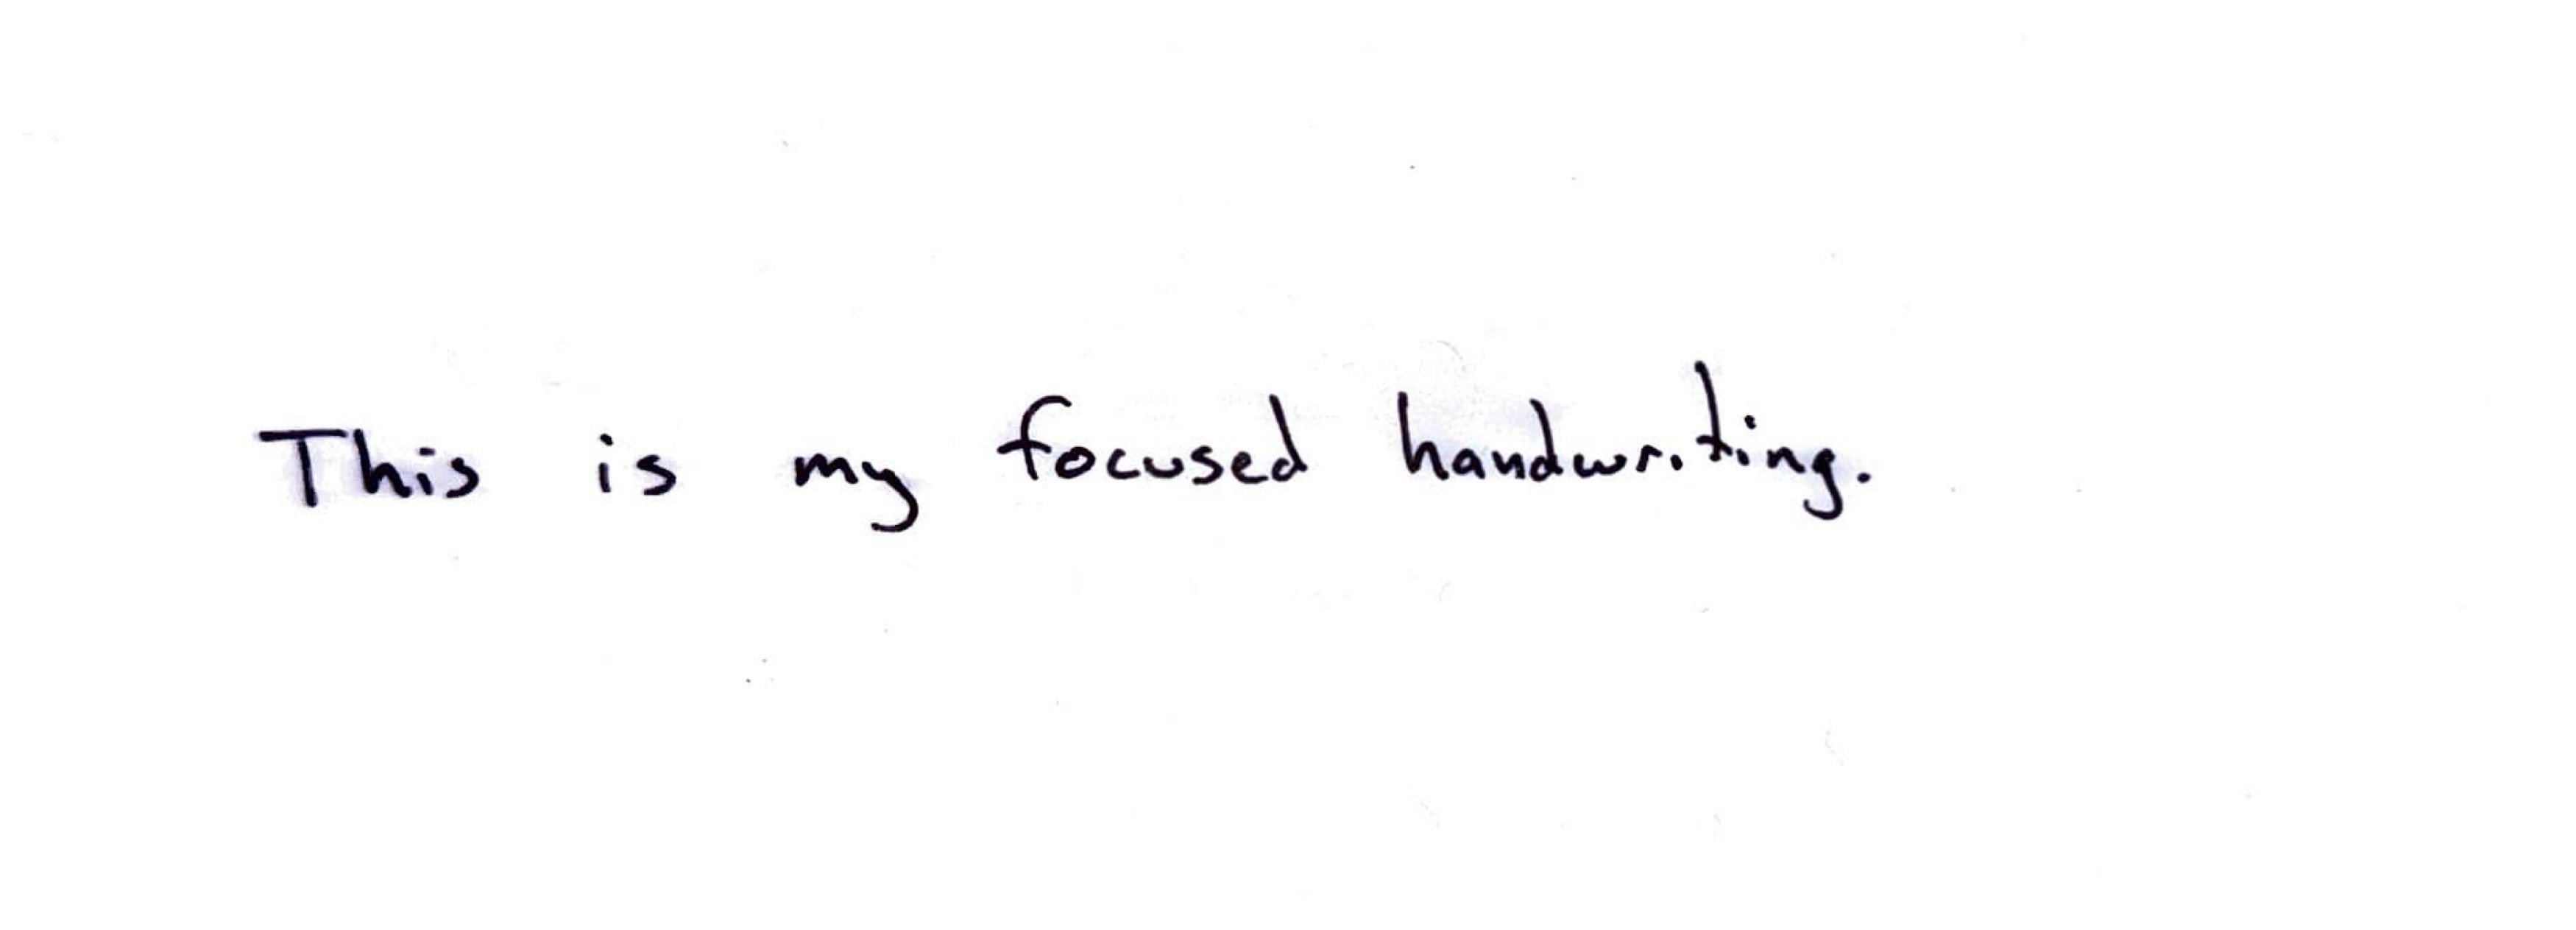 This is my focused handwriting.